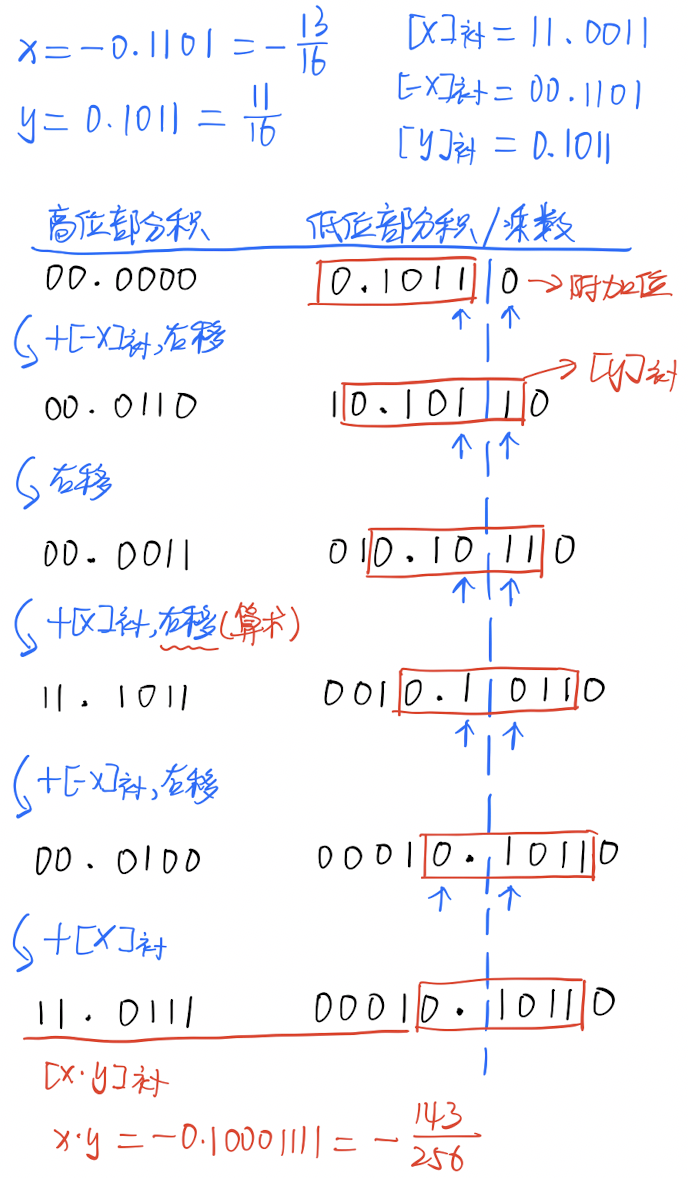 x = -0.1101 = -13/16
[x]补 = 11.0011
[-x]补 = 00.1101
y = 0.1011 = 11/16
[y]补 = 0.1011
高位部分积 低位部分积/乘数
00.0000 0.1011 0 → 附加位
+[-x]补,右移
00.0110 10.101 10 → [y]补
右移
00.0011 010.10 110
+[x]补,右移(算术)
11.1011 0010.1 0110
+[-x]补,右移
00.0100 00010. 10110
+[x]补
11.0111 00010. 10110
[x·y]补
x·y = -0.10001111 = -143/256